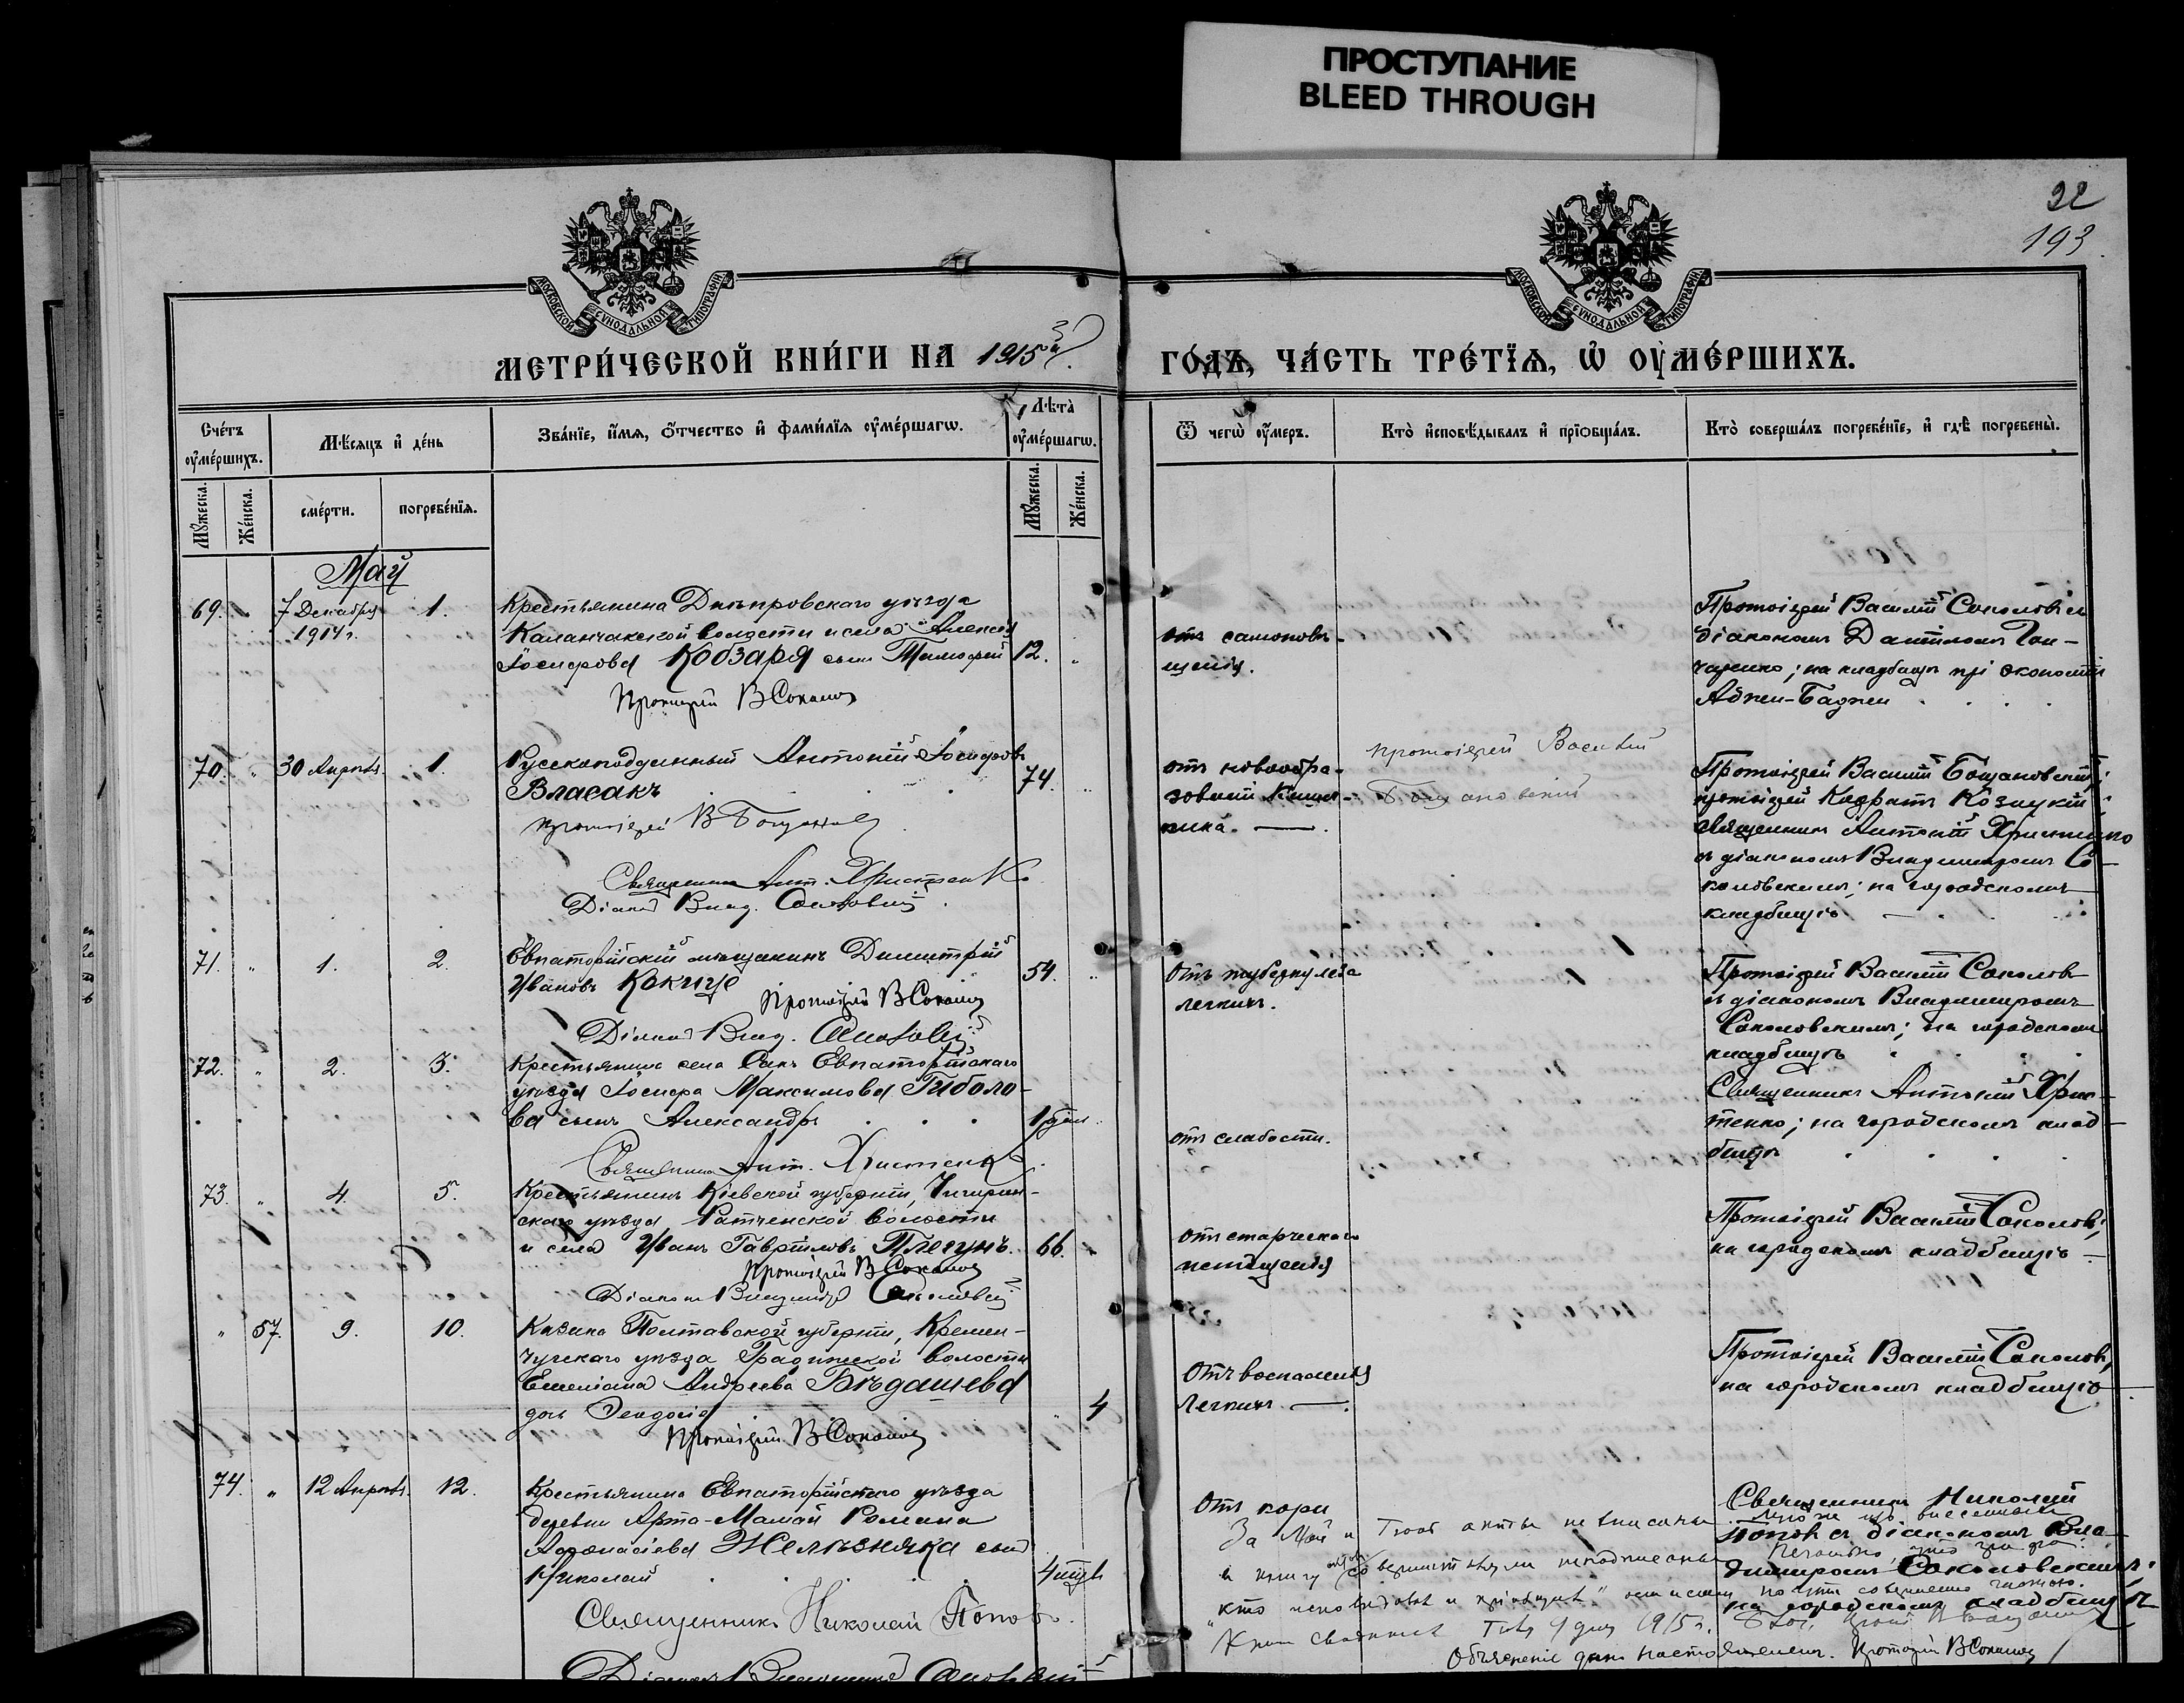 ПРОСТУПАНИЕ
BLEED THROUGH
22
193
МОСКОВСКОЙ СѴНОДАЛЬНОЙ ТИПОГРАФІИ
МОСКОВСКОЙ СѴНОДАЛЬНОЙ ТИПОГРАФІИ
МЕТРИ́ЧЕСКОЙ КНИ́ГИ НА 1915й
ГО́ДЪ, ЧА́СТЬ ТРЕ́ТЇѦ, Ѡ҆ ОУ҆МЕ́РШИХЪ.
Сче́тъ оу҆ме́ршихъ.
Мѣ́сяцъ и҆ де́нь
Зва́нїе, и҆́мя, ѻ҆́тчество и҆ фами́лїя оу҆ме́ршагѡ.
Лѣ̀та̀ оу҆ме́ршагѡ.
Ѿ чегѡ̀ оу҆́меръ.
Кто̀ и҆сповѣ́дывалъ и҆ прїѡбща́лъ.
Кто̀ соверша́лъ погребе́нїе, и҆ гдѣ̀ погребены̀.
Мꙋ́жеска. Же́нска. сме́рти. погребе́нїя. Мꙋ́жеска. Же́нска.
Май
69. 7 Декабря 1914г. 1.
Крестьянина Днѣпровскаго уѣзда
Каланчакской волости и села Алексѣя
Іосифова Кобзаря сынъ Тимофей 12. "
Протоіерей В Соколов
отъ самоповѣ-
шенія.
Протоіерей Василій Соколовъ съ
діакономъ Даніиломъ Гон-
чаренко; на кладбищѣ при экономіи
Аджи-Баджи
70. " 30 Апрѣля. 1.
Русскоподданный Антоній Іосифовъ
Власакъ 74. "
протоіерей В Бощановскій
Священникъ Ант. Христенко
Діаконъ Влад. Соколовскій
отъ новообра-
зованій Кишеч-
ника.
протоіерей Василій
Бощановскій
Протоіерей Василій Бощановскій;
протоіерей Кодратъ Козицкій
священникъ Антоній Христенко
съ діакономъ Владимиромъ Со-
коловскимъ; на городскомъ
кладбищѣ
71. " 1. 2.
Евпаторійскій мѣщанинъ Димитрій
Ивановъ Кокчуе 54. "
Протоіерей В Соколов
Діаконъ Влад. Соколовскій
Отъ туберкулеза
легкихъ.
Протоіерей Василій Соколовъ
съ діакономъ Владимиромъ
Соколовскимъ; на городскомъ
кладбищѣ
72. " 2. 3.
Крестьянина села Сакъ Евпаторійскаго
уѣзда Іосифа Максимова Гиболо-
ва сынъ Александръ 1 день
Священникъ Ант. Христенко
отъ слабости.
Священникъ Антоній Хрис-
тенко; на городскомъ клад-
бищѣ
73. " 4. 5.
Крестьянинъ Кіевской губерніи, Чигирин-
скаго уѣзда, Ратченской волости
и села Иванъ Гавріиловъ Плегунъ. 66. "
Протоіерей В Соколов
Діаконъ Владимиръ Соколовскій
отъ старческаго
истощенія
Протоіерей Василій Соколовъ;
на городскомъ кладбищѣ
" 57. 9. 10.
Казака Полтавской губерніи, Кремен-
чугскаго уѣзда Градижской волости
Емеліана Андреева Бѣдашева
дочь Феодосія " 4
Протоіерей В Соколов
Отъ воспаленія
легкихъ.
Протоіерей Василій Соколовъ,
на городскомъ кладбищѣ
74. " 12 Апрѣля. 12.
Крестьянина Евпаторійскаго уѣзда
деревни Арта-Мамай Романа
Афонасіева Желѣзняка сынъ
Николай 4 мѣс.
Священникъ Николай Поповъ.
Діаконъ Владимиръ Соколовскій
отъ кори
Священникъ Николай
Поповъ съ діакономъ Вла-
димиромъ Соколовскимъ;
на городскомъ кладбищѣ
За Май и акты не вписаны
въ книгу неподписаны
"кто исповѣдовалъ и пріобщалъ"
1915 г.
Объясненіе дано настоятелемъ. Протоіерей В Соколов